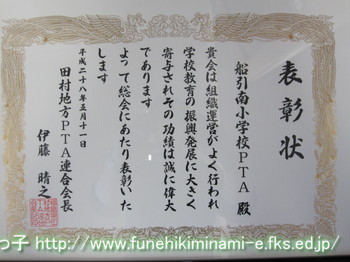 表彰状
船引南小学校PTA 殿
貴会は組織運営がよく行われ
学校教育の振興発展に大きく
寄与されその功績は誠に偉大
であります
よって総会にあたり表彰いた
します
平成二十八年五月十一日
田村地方PTA連合会長
伊藤 晴之
っ子 http://www.funehikiminami-e.fks.ed.jp/